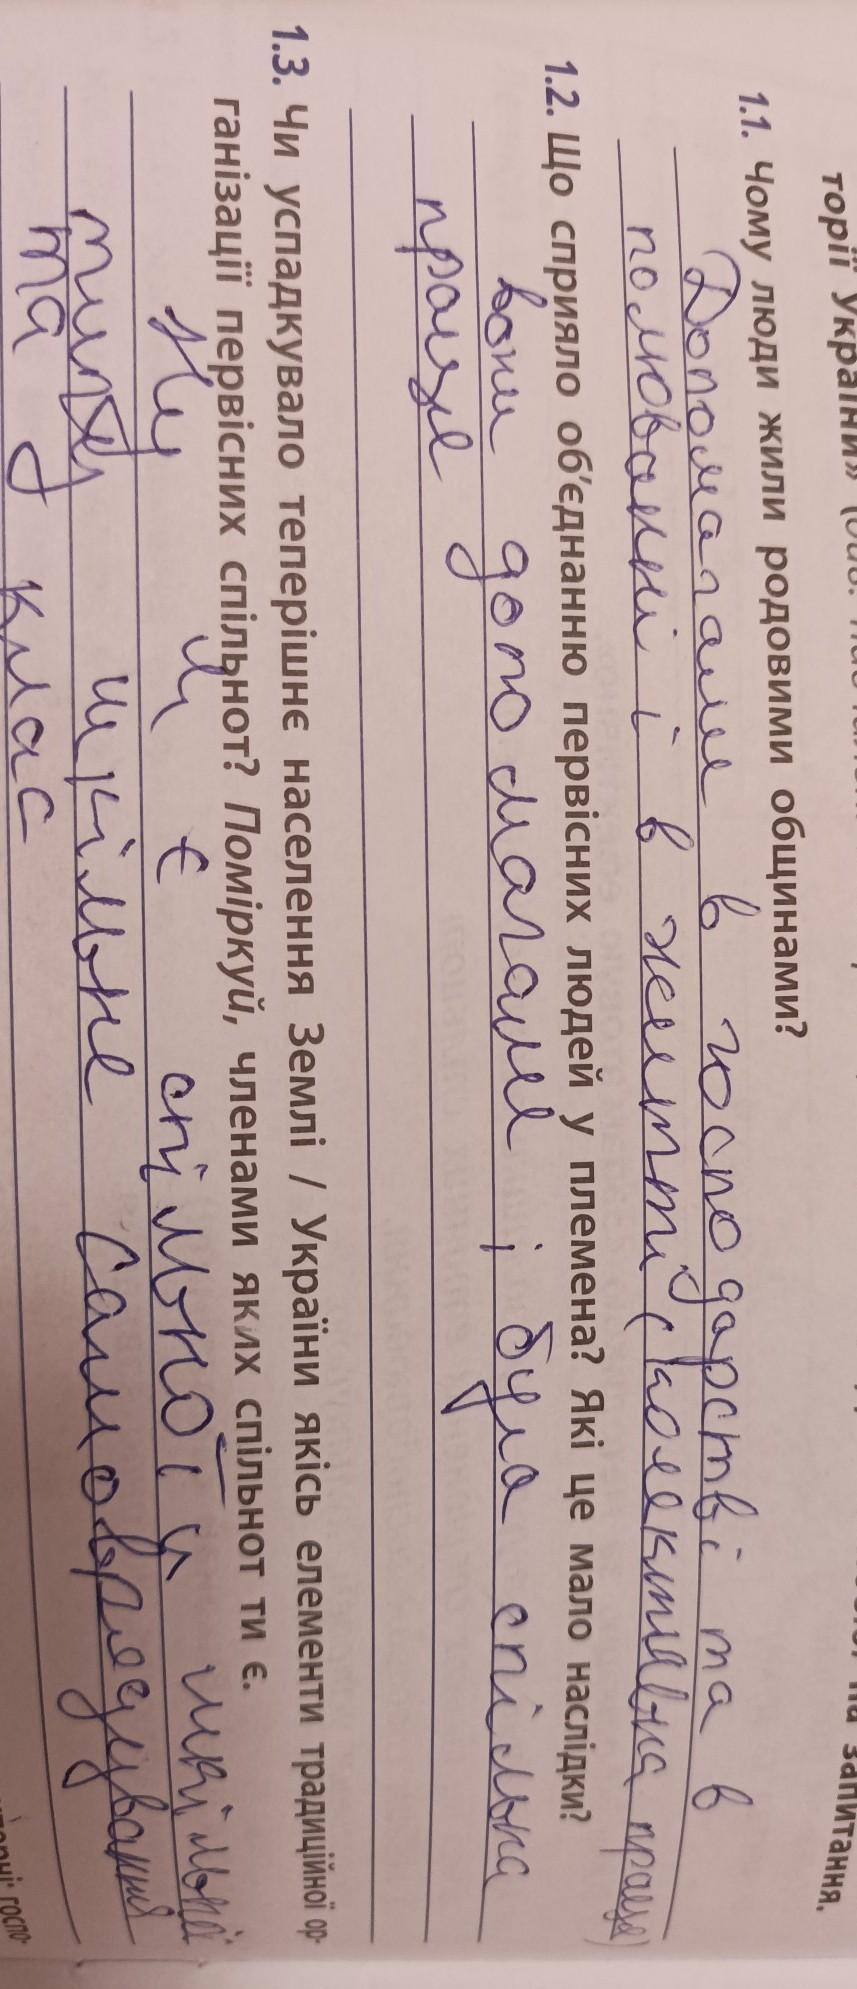 торії України»
запитання.
1.1. Чому люди жили родовими общинами?
Допомагали в господарстві та в
полюванні і в житті (колективна праця)
1.2. Що сприяло об'єднанню первісних людей у племена? Які це мало наслідки?
вони допомагали і була спільна
праця
1.3. Чи успадкувало теперішнє населення Землі / України якісь елементи традиційної ор-
ганізації первісних спільнот? Поміркуй, членами яких спільнот ти є.
є спільної
шкільне самоврядування
та клас